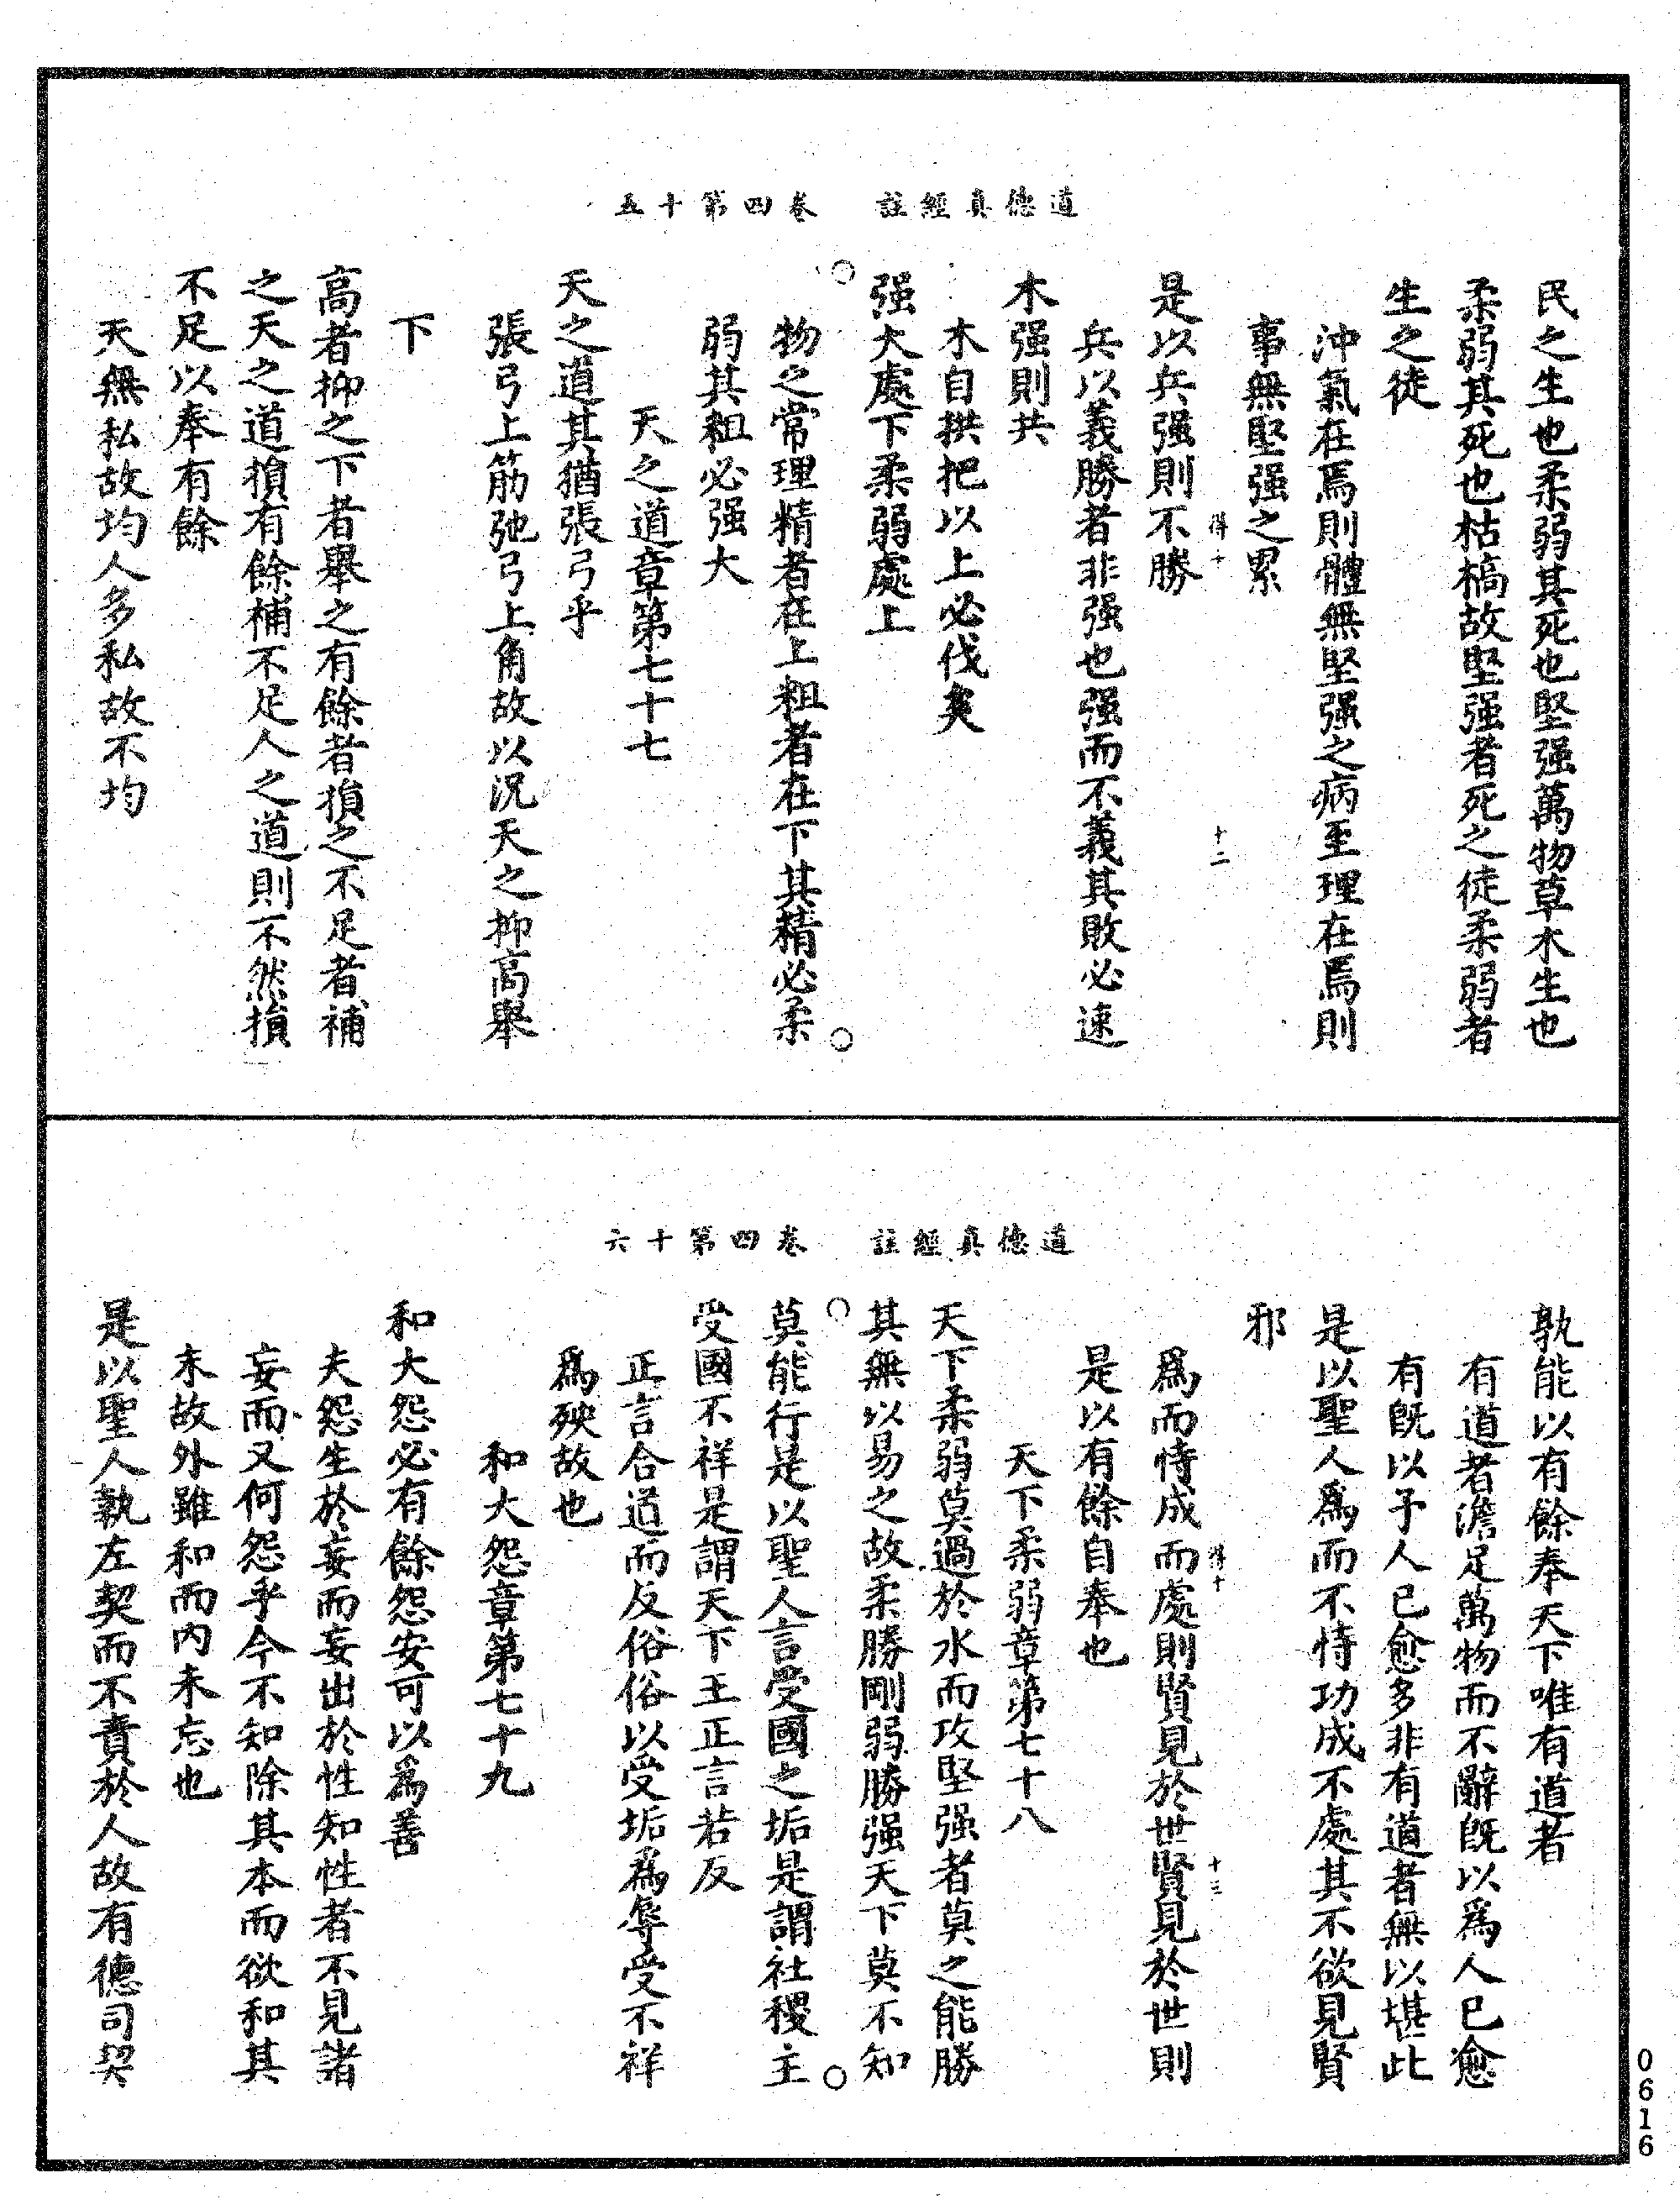 道德真經註　卷四第十五
民之生也柔弱其死也堅强萬物草木生也
柔弱其死也枯槁故堅强者死之徒柔弱者
生之徒
沖氣在焉則體無堅强之病至理在焉則
事無堅强之累
得十　十二
是以兵强則不勝
兵以義勝者非强也强而不義其敗必速
木强則共
木自拱把以上必伐矣
强大處下柔弱處上
物之常理精者在上粗者在下其精必柔
弱其粗必强大
天之道章第七十七
天之道其猶張弓乎
張弓上筋弛弓上角故以況天之抑高舉
下
高者抑之下者舉之有餘者損之不足者補
之天之道損有餘補不足人之道則不然損
不足以奉有餘
天無私故均人多私故不均
道德真經註　卷四第十六
孰能以有餘奉天下唯有道者
有道者澹足萬物而不辭既以爲人已愈
有既以予人已愈多非有道者無以堪此
是以聖人爲而不恃功成不處其不欲見賢
邪
得十　十三
爲而恃成而處則賢見於世賢見於世則
是以有餘自奉也
天下柔弱章第七十八
天下柔弱莫過於水而攻堅强者莫之能勝
其無以易之故柔勝剛弱勝强天下莫不知
莫能行是以聖人言受國之垢是謂社稷主
受國不祥是謂天下王正言若反
正言合道而反俗俗以受垢爲辱受不祥
爲殃故也
和大怨章第七十九
和大怨必有餘怨安可以爲善
夫怨生於妄而妄出於性知性者不見諸
妄而又何怨乎今不知除其本而欲和其
末故外雖和而內未忘也
是以聖人執左契而不責於人故有德司契
0616